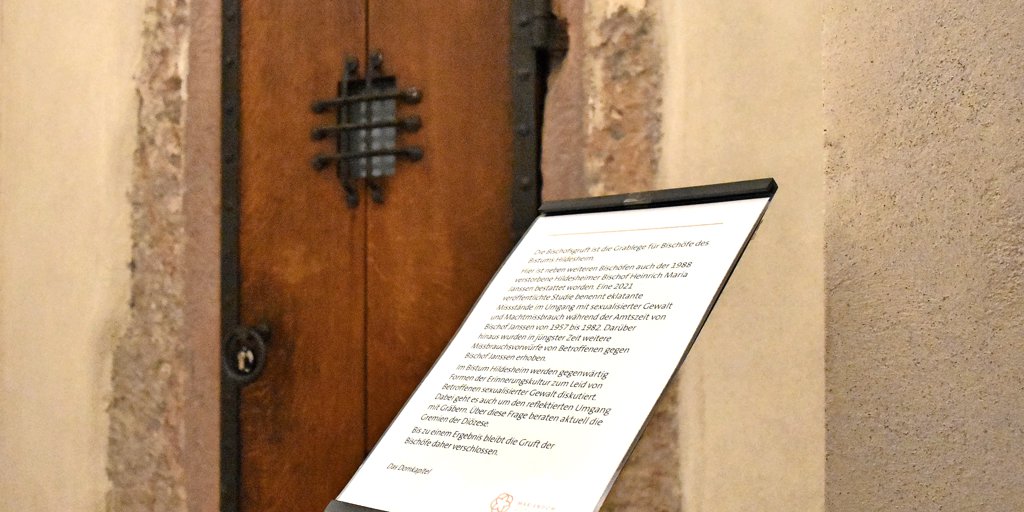 Die Bischofsgruft ist die Grablege für Bischöfe des
Bistums Hildesheim.
Hier ist neben weiteren Bischöfen auch der 1988
verstorbene Hildesheimer Bischof Heinrich Maria
Janssen bestattet worden. Eine 2021
veröffentlichte Studie benennt eklatante
Missstände im Umgang mit sexualisierter Gewalt
und Machtmissbrauch während der Amtszeit von
Bischof Janssen von 1957 bis 1982. Darüber
hinaus wurden in jüngster Zeit weitere
Missbrauchsvorwürfe von Betroffenen gegen
Bischof Janssen erhoben.
Im Bistum Hildesheim werden gegenwärtig
Formen der Erinnerungskultur zum Leid von
Betroffenen sexualisierter Gewalt diskutiert.
Dabei geht es auch um den reflektierten Umgang
mit Gräbern. Über diese Frage beraten aktuell die
Gremien der Diözese.
Bis zu einem Ergebnis bleibt die Gruft der
Bischöfe daher verschlossen.
Das Domkapitel